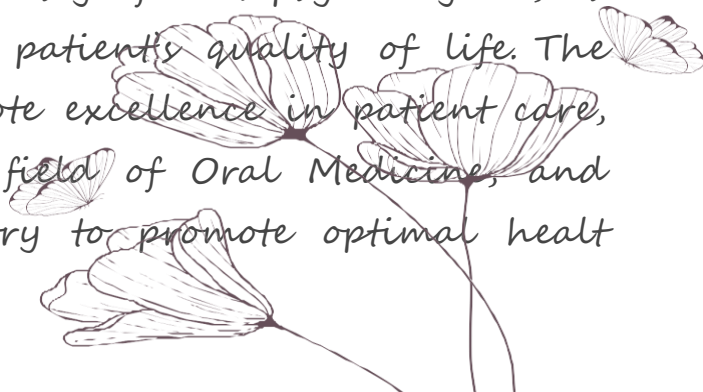 patient's quality of life. The
ote excellence in patient care,
field of Oral Medicine, and
ry to promote optimal healt